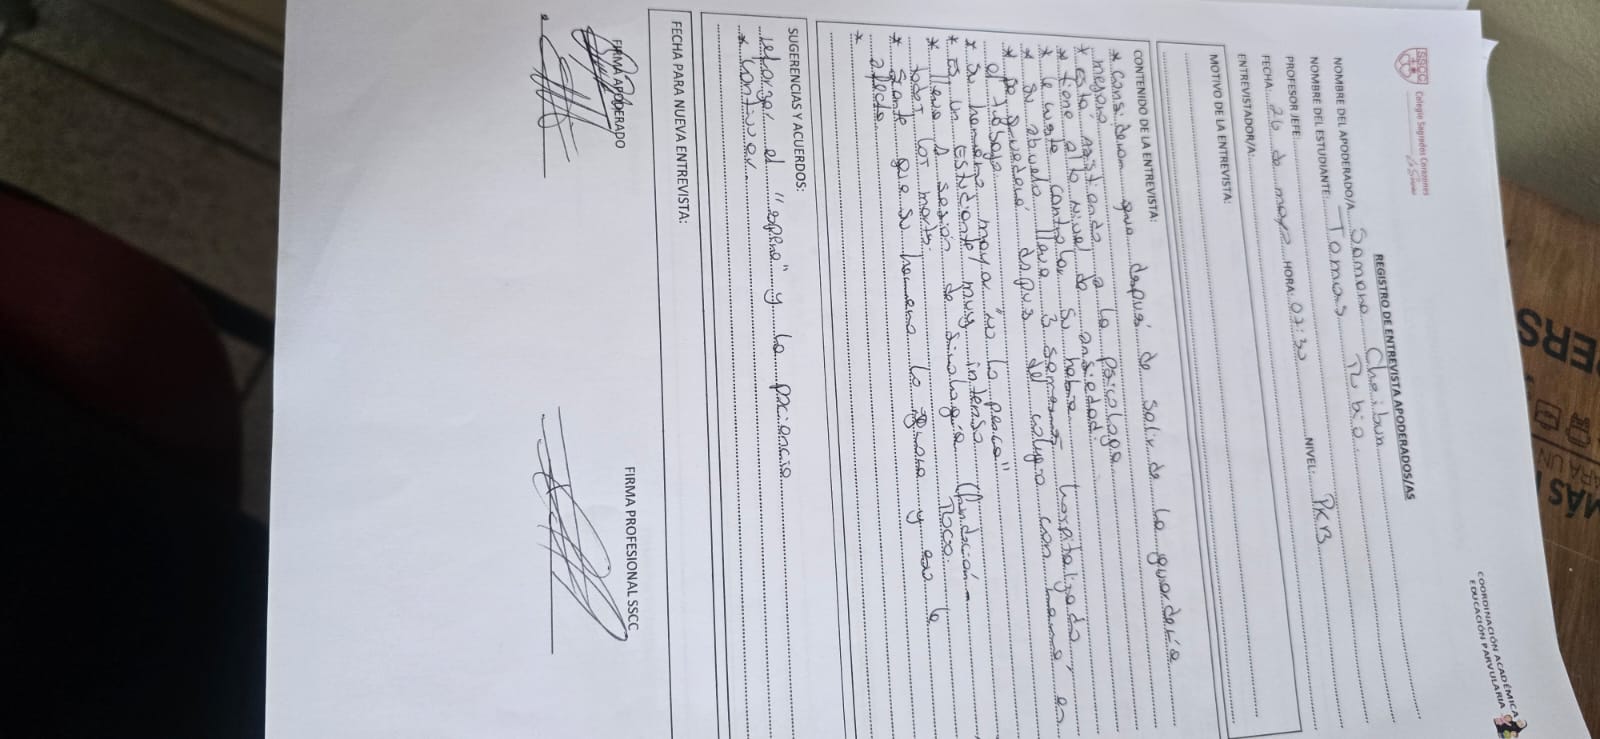 SSCC
Colegio Sagrados Corazones
COORDINACIÓN ACADÉMICA
EDUCACIÓN PARVULARIA
REGISTRO DE ENTREVISTA APODERADOS/AS
NOMBRE DEL APODERADO/A Samara Cheibun
NOMBRE DEL ESTUDIANTE: Tomas Rubio.
PROFESOR JEFE: NIVEL: PKB
FECHA: 26 de mayo HORA: 07:30
ENTREVISTADOR/A:
MOTIVO DE LA ENTREVISTA:
CONTENIDO DE LA ENTREVISTA:
* Consideran que después de salir de la guardería
mejoró
* está asistiendo a la psicóloga
* tiene alto nivel de ansiedad.
* le gusta controlar su hablar hospitalizado, en
* su abuelo lleva 3 semanas
* Se quedará después del colegio con mamá en
el trabajo.
* Su hermano mayor "no lo pesca"
* Es un estudiante muy intenso (fundación
* lleva 1 sesión de sicología Roco.
todos los martes
* siente que su hermano lo ignora y eso le
afecta.
*
SUGERENCIAS Y ACUERDOS:
reforzar el "espera" y la paciencia
* Continuar
FECHA PARA NUEVA ENTREVISTA:
FIRMA APODERADO
FIRMA PROFESIONAL SSCC
PERS
MÁS
PARA UN